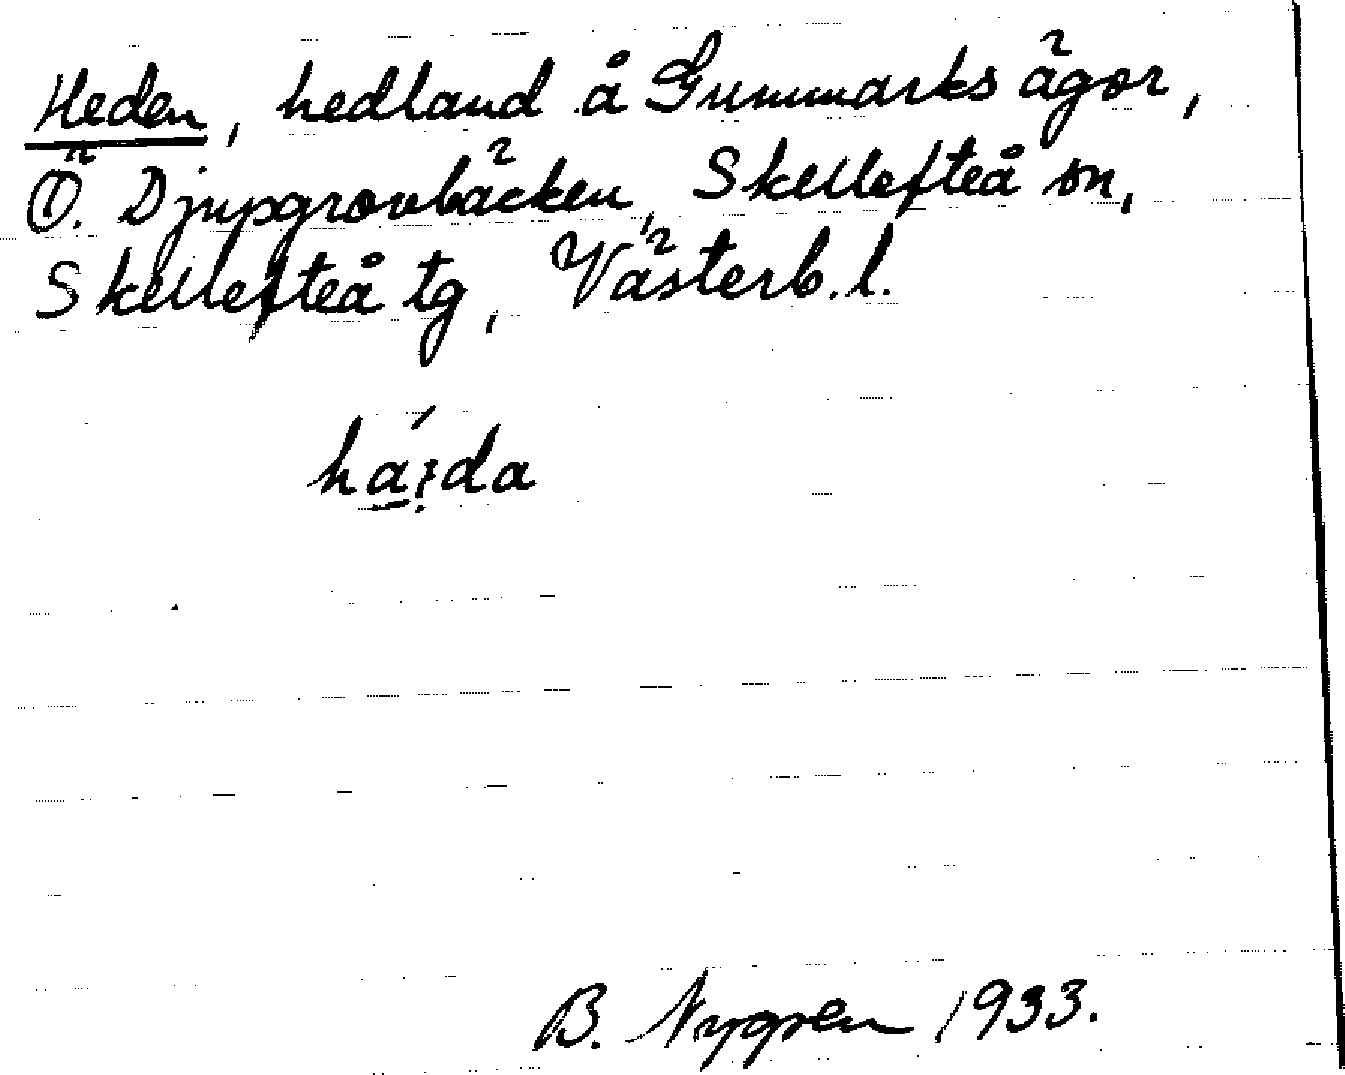 Heden, hedland å Gummarks ägor,
Ö. Djupgrovbäcken, Skellefteå sn,
Skellefteå tg, Västerb. l.
B. Nygren 1933.